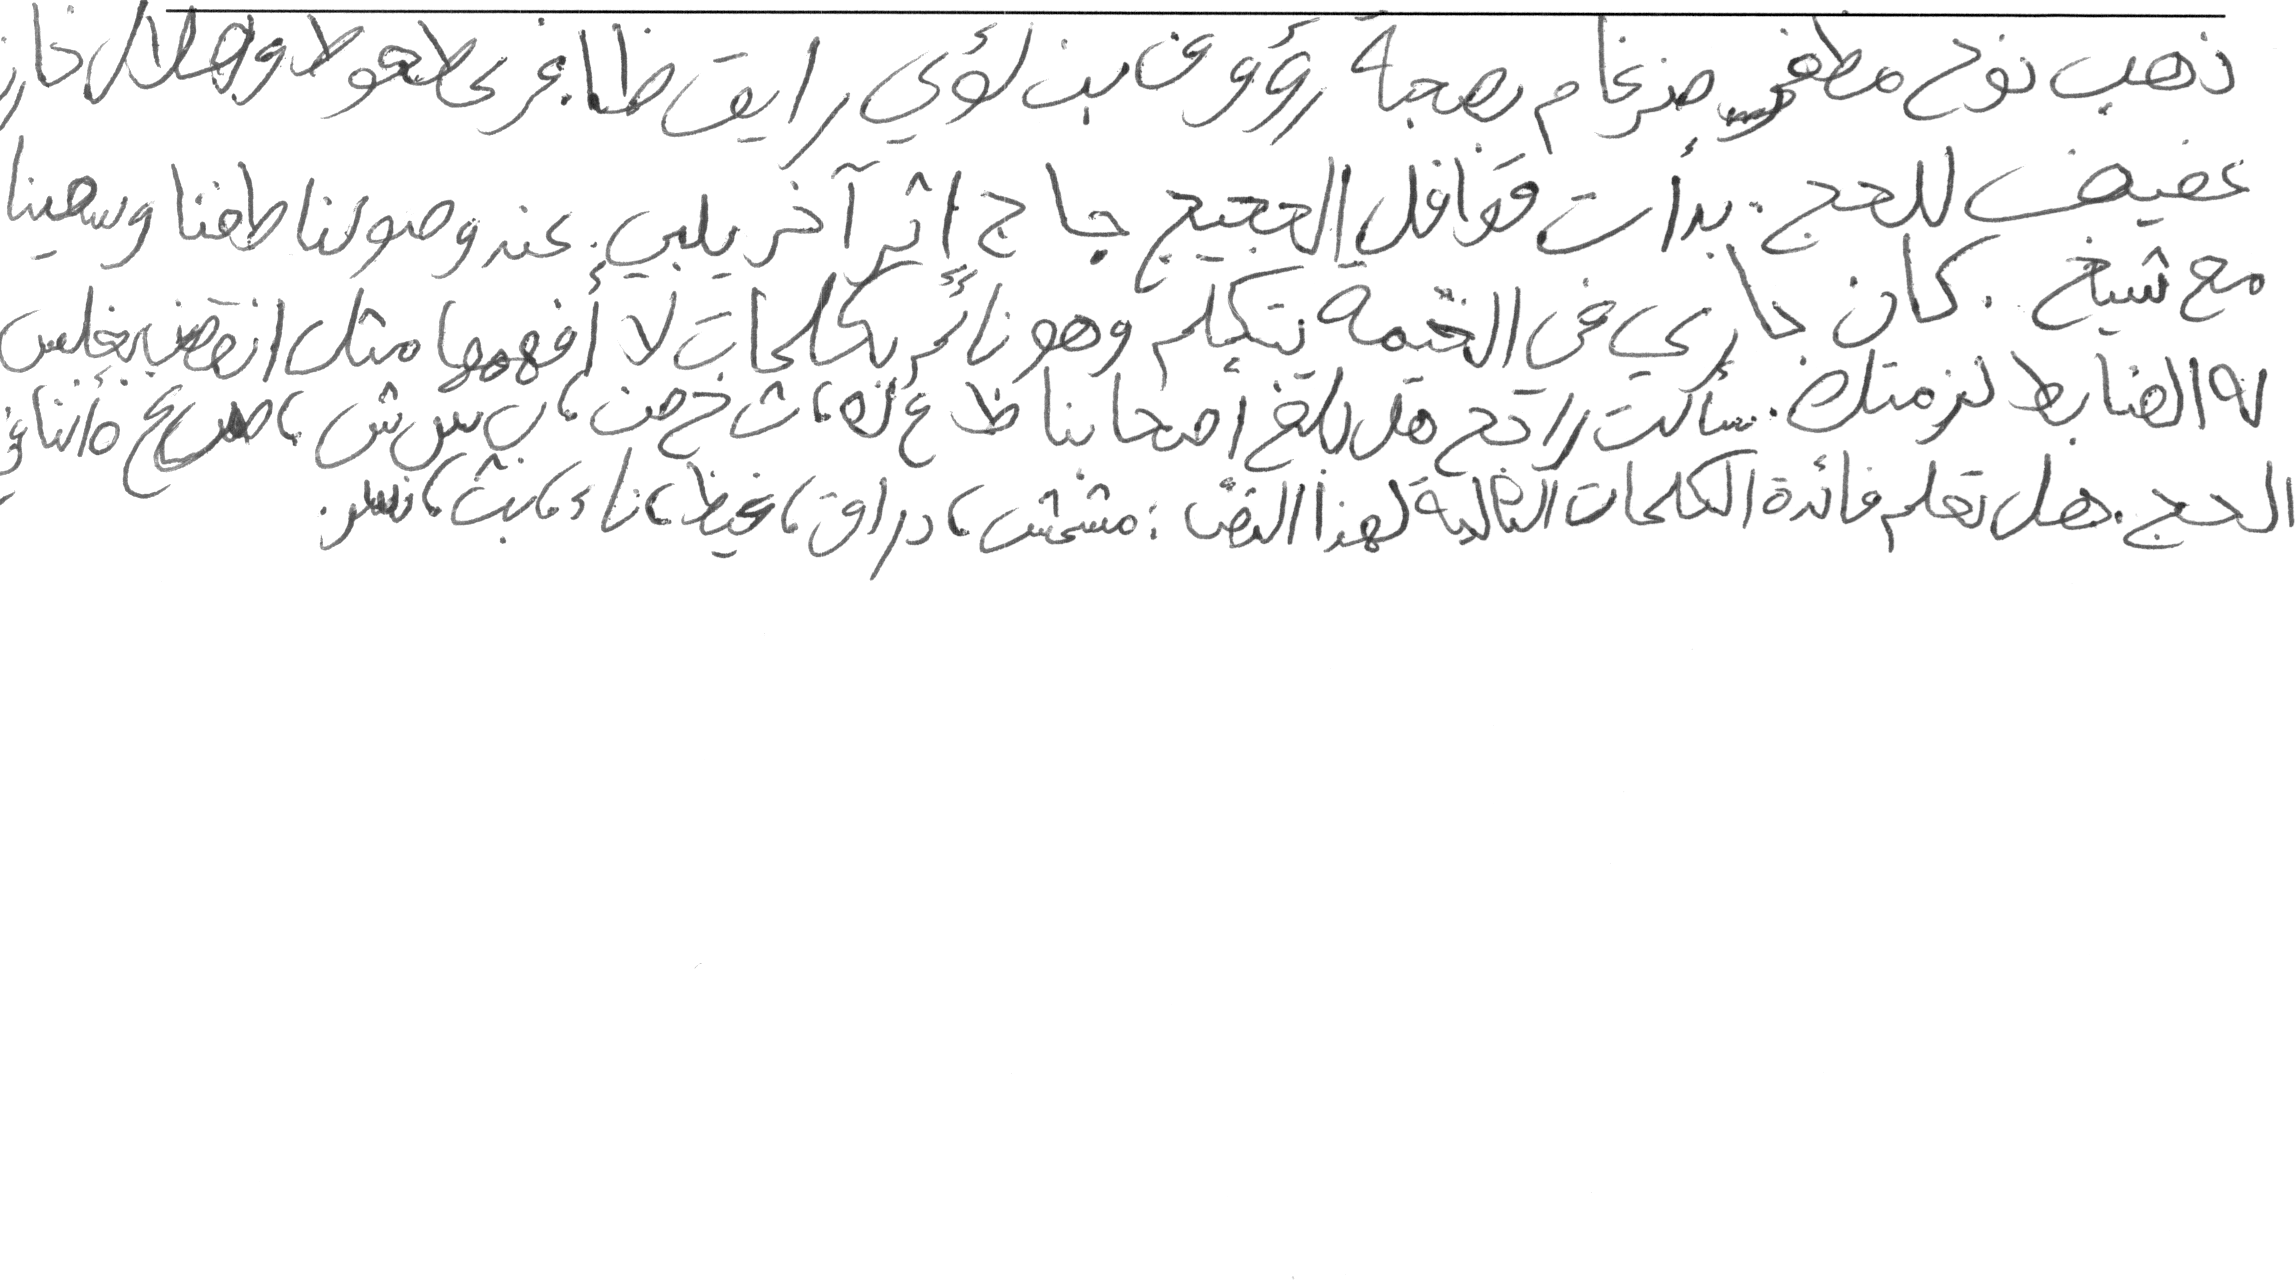 ذهب نوح مظفر ضرغام بصحبة رؤوف بن لؤي رايق ظافر يحظ وهلال
عفيف للحج . بدأت قوافل الحجيج حاج اثر آخر يلبي . عند وصولنا طفنا وسعينا
مع شيخ . كان جاري في الخيمة يتكلم وهو نائم بكلمات لا أفهمها مثل
له الضابط لزمتك . سألت راجح هل بلغ أصحابنا ظ ع له ، ث خ ص ن ، ب س ش ، ص غ ه أثناء
الحج . هل تعلم فائدة الكلمات التالية لهذا النص : مشمش ، دراق ، غيظ ، ناء ، بث ، نسر .